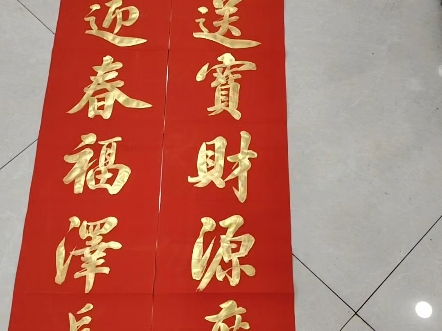 送寶財源
迎春福澤